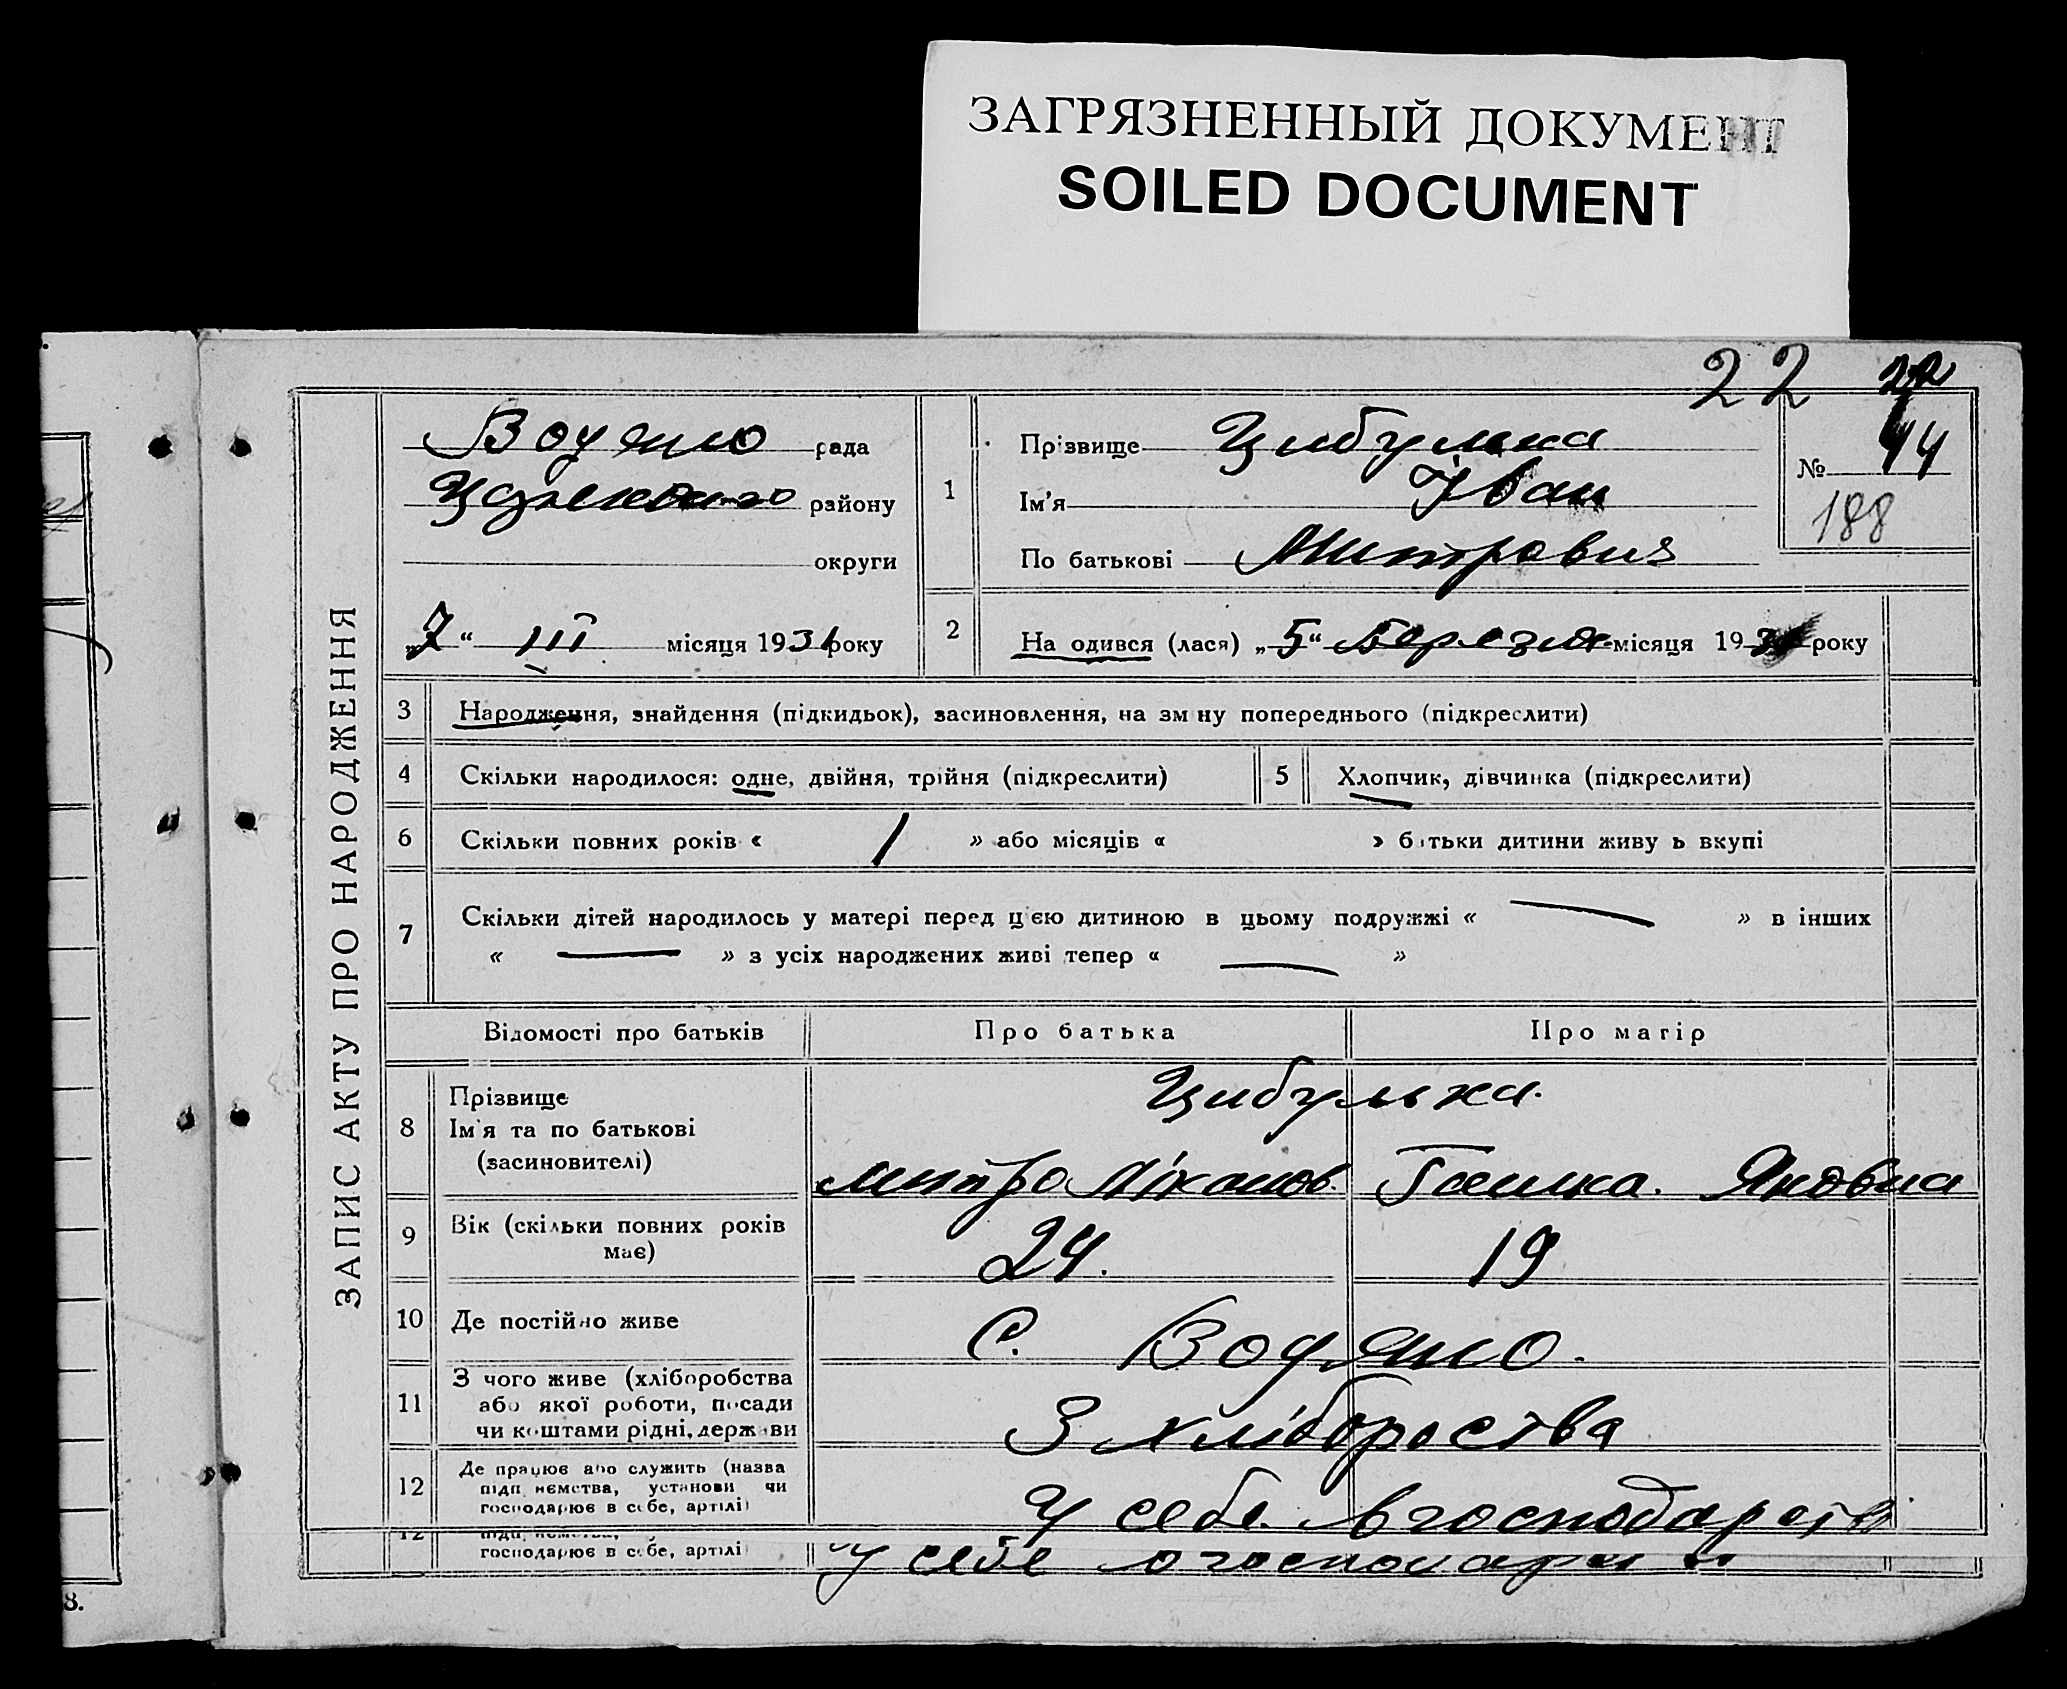 ЗАГРЯЗНЕННЫЙ ДОКУМЕНТ
SOILED DOCUMENT
22 22
ЗАПИС АКТУ ПРО НАРОДЖЕННЯ
Водяно рада
району
округи
„7“ III місяця 1931 року
1
Прізвище Цибулька
Ім'я Іван
По батькові Митрович
№ 44
188
2 На одився (лася) „5“ Березня місяця 193 року
3 Народження, знайдення (підкидьок), засиновлення, на зм ну попереднього (підкреслити)
4 Скільки народилося: одне, двійня, трійня (підкреслити)
5 Хлопчик, дівчинка (підкреслити)
6 Скільки повних років « 1 » або місяців « » батьки дитини живу ь вкупі
7 Скільки дітей народилось у матері перед цією дитиною в цьому подружжі « — » в інших
« — » з усіх народжених живі тепер « — »
Відомості про батьків Про батька Про матір
8 Прізвище
Ім'я та по батькові
(засиновителі)
Цибулька.
Митро Ганка. Яковна
9 Вік (скільки повних років
має)
24. 19
10 Де постійно живе С. Водяно.
11 З чого живе (хліборобства
або якої роботи, посади
чи коштами рідні, держави
З хлібороства
12 Де працює або служить (назва
підп ємства, установи чи
господарює в себе, артілі)
У себе в господарстві
12
господарює в себе, артілі
у себе
8.